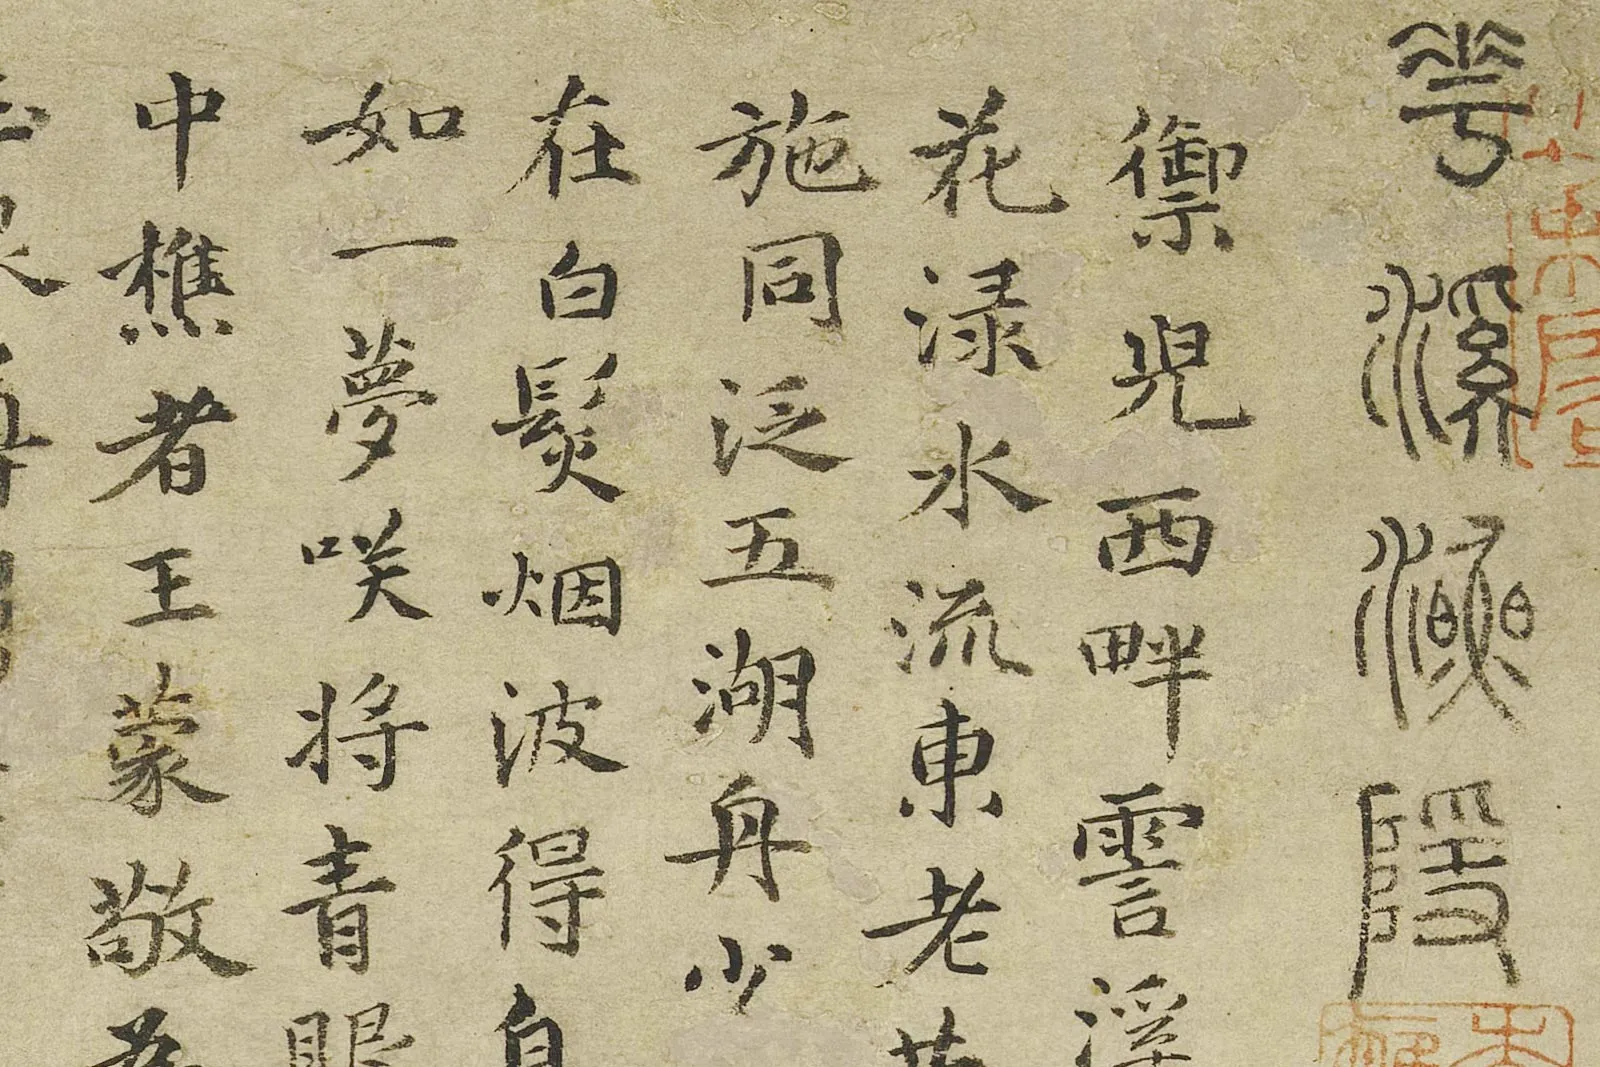 華溪漁隱
禦兒西畔霅溪
花渌水流東老共
施同泛五湖舟少
在白髮烟波得自
如一夢咲将青眼
中樵者王蒙敬為